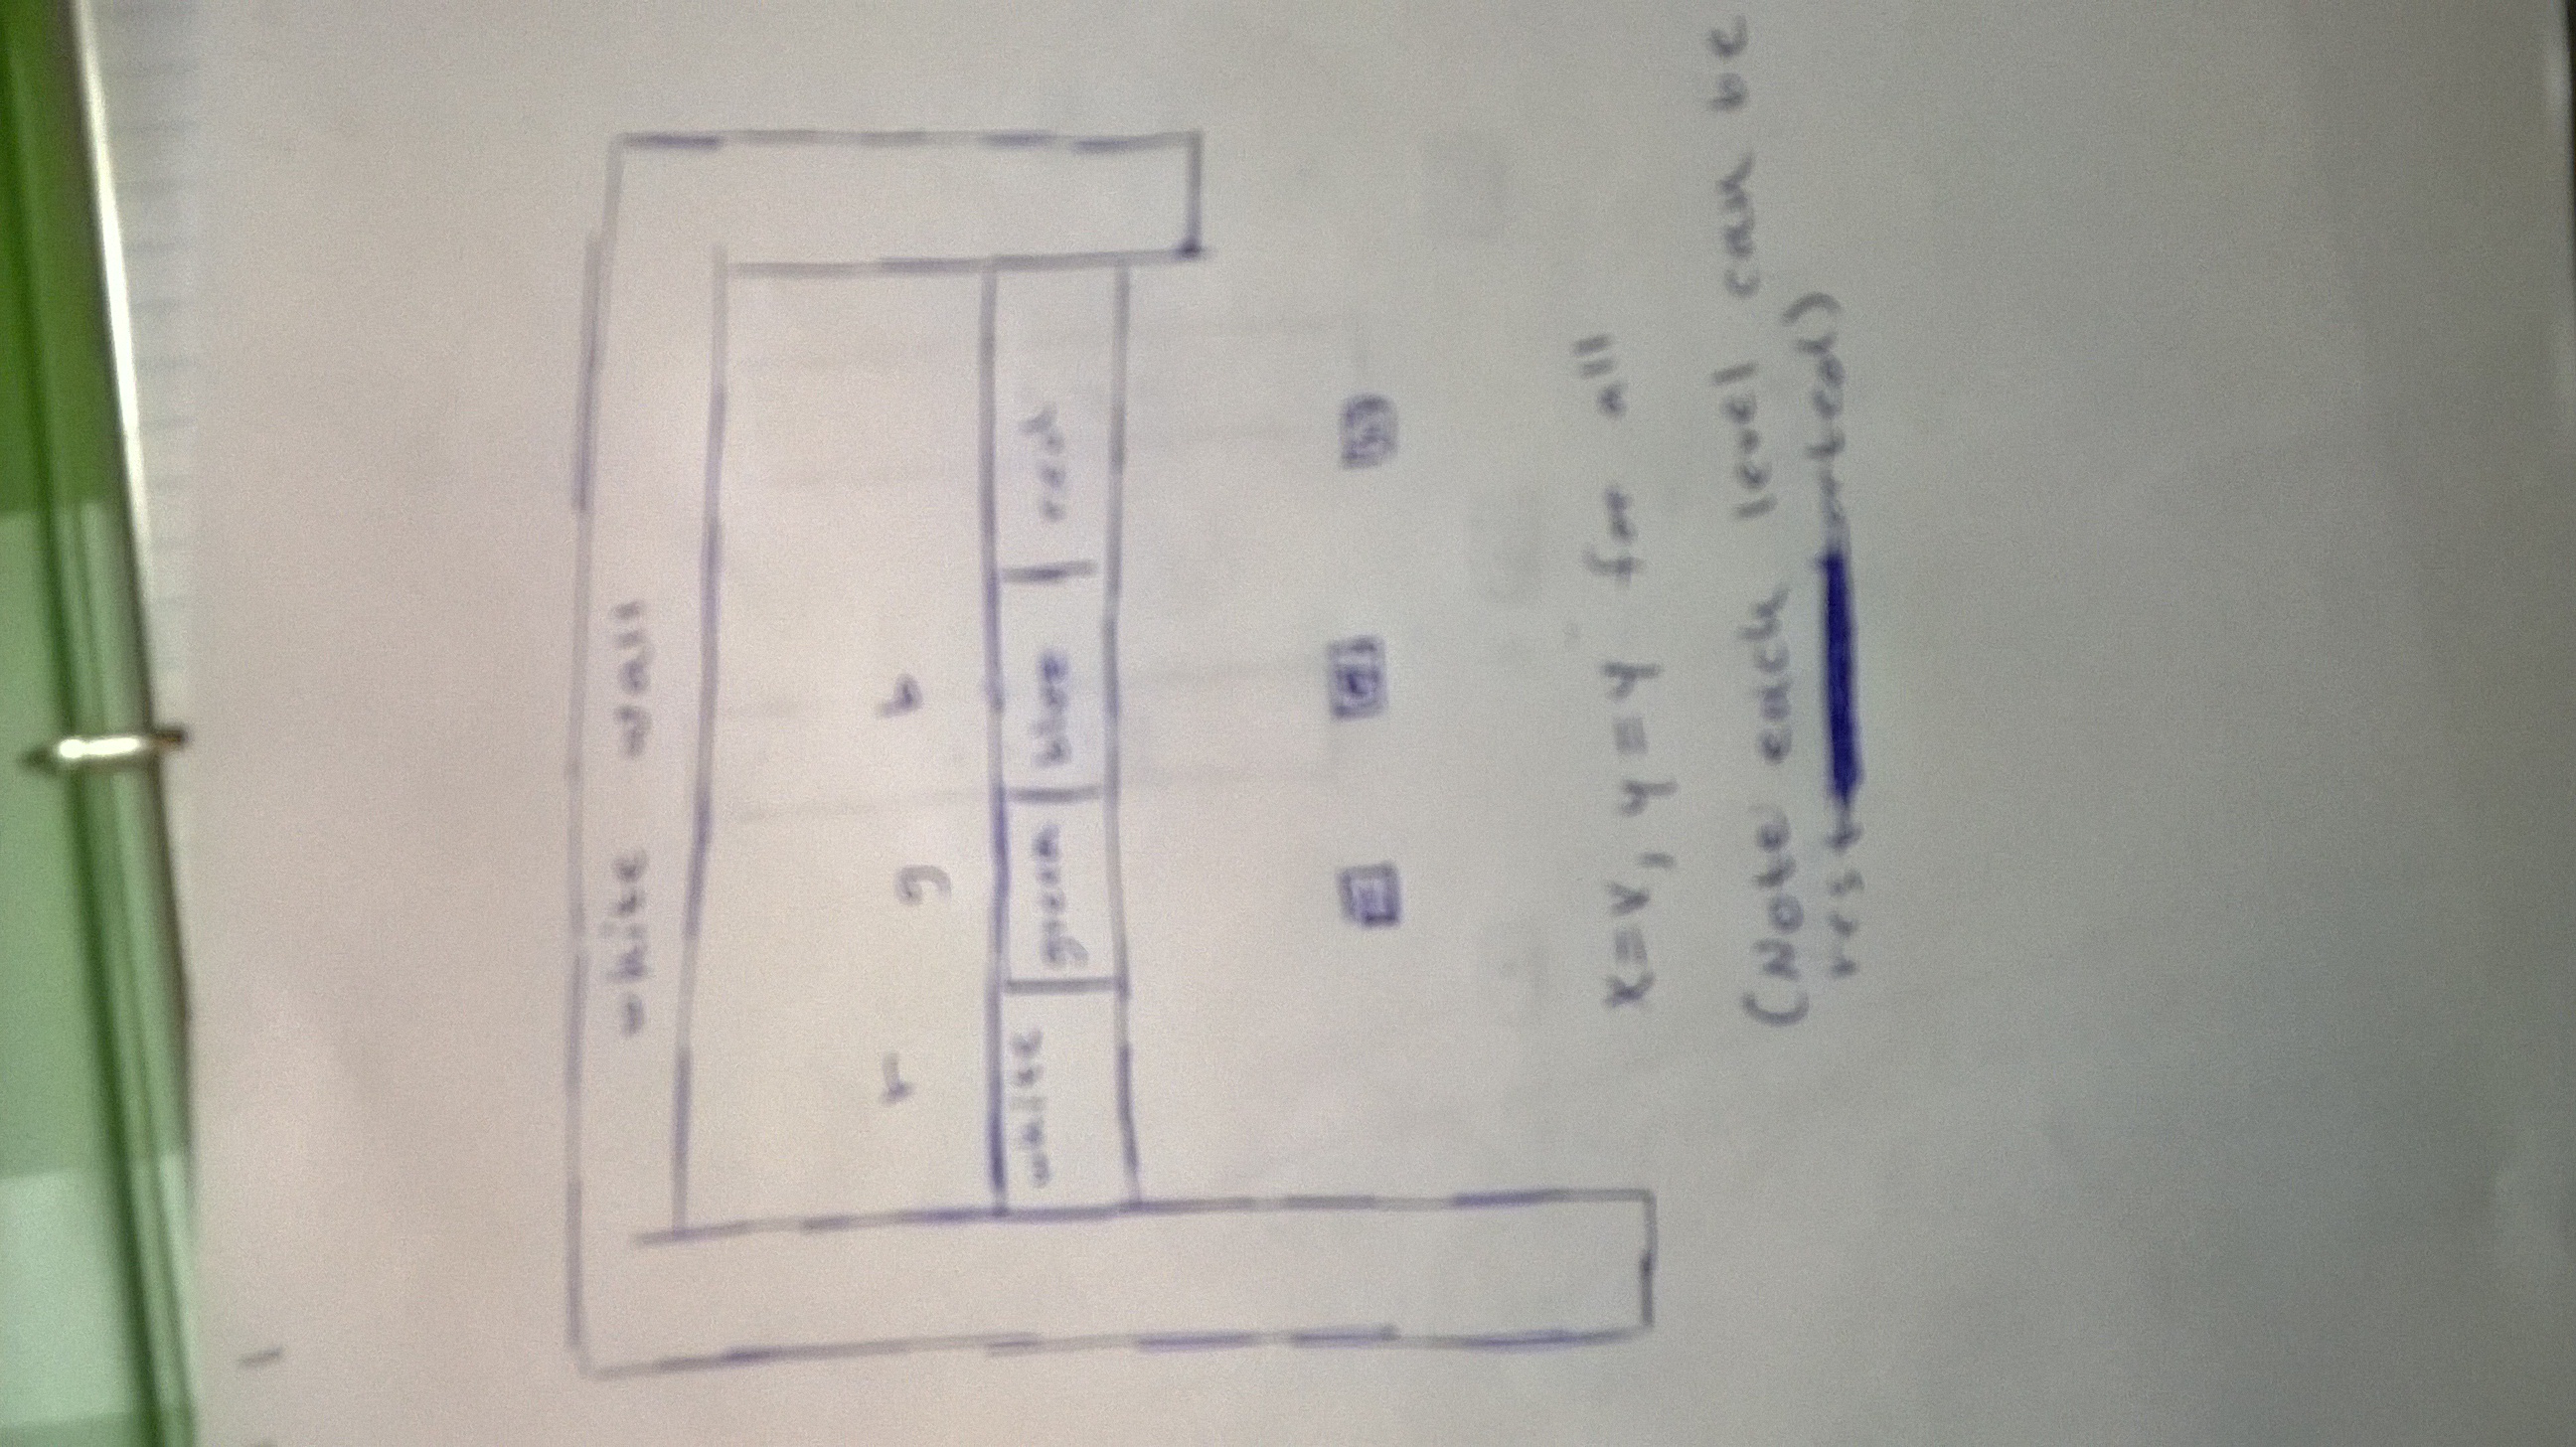 white wall
r g b
white green blue red
x=v, y=y for all
(Note each level can be